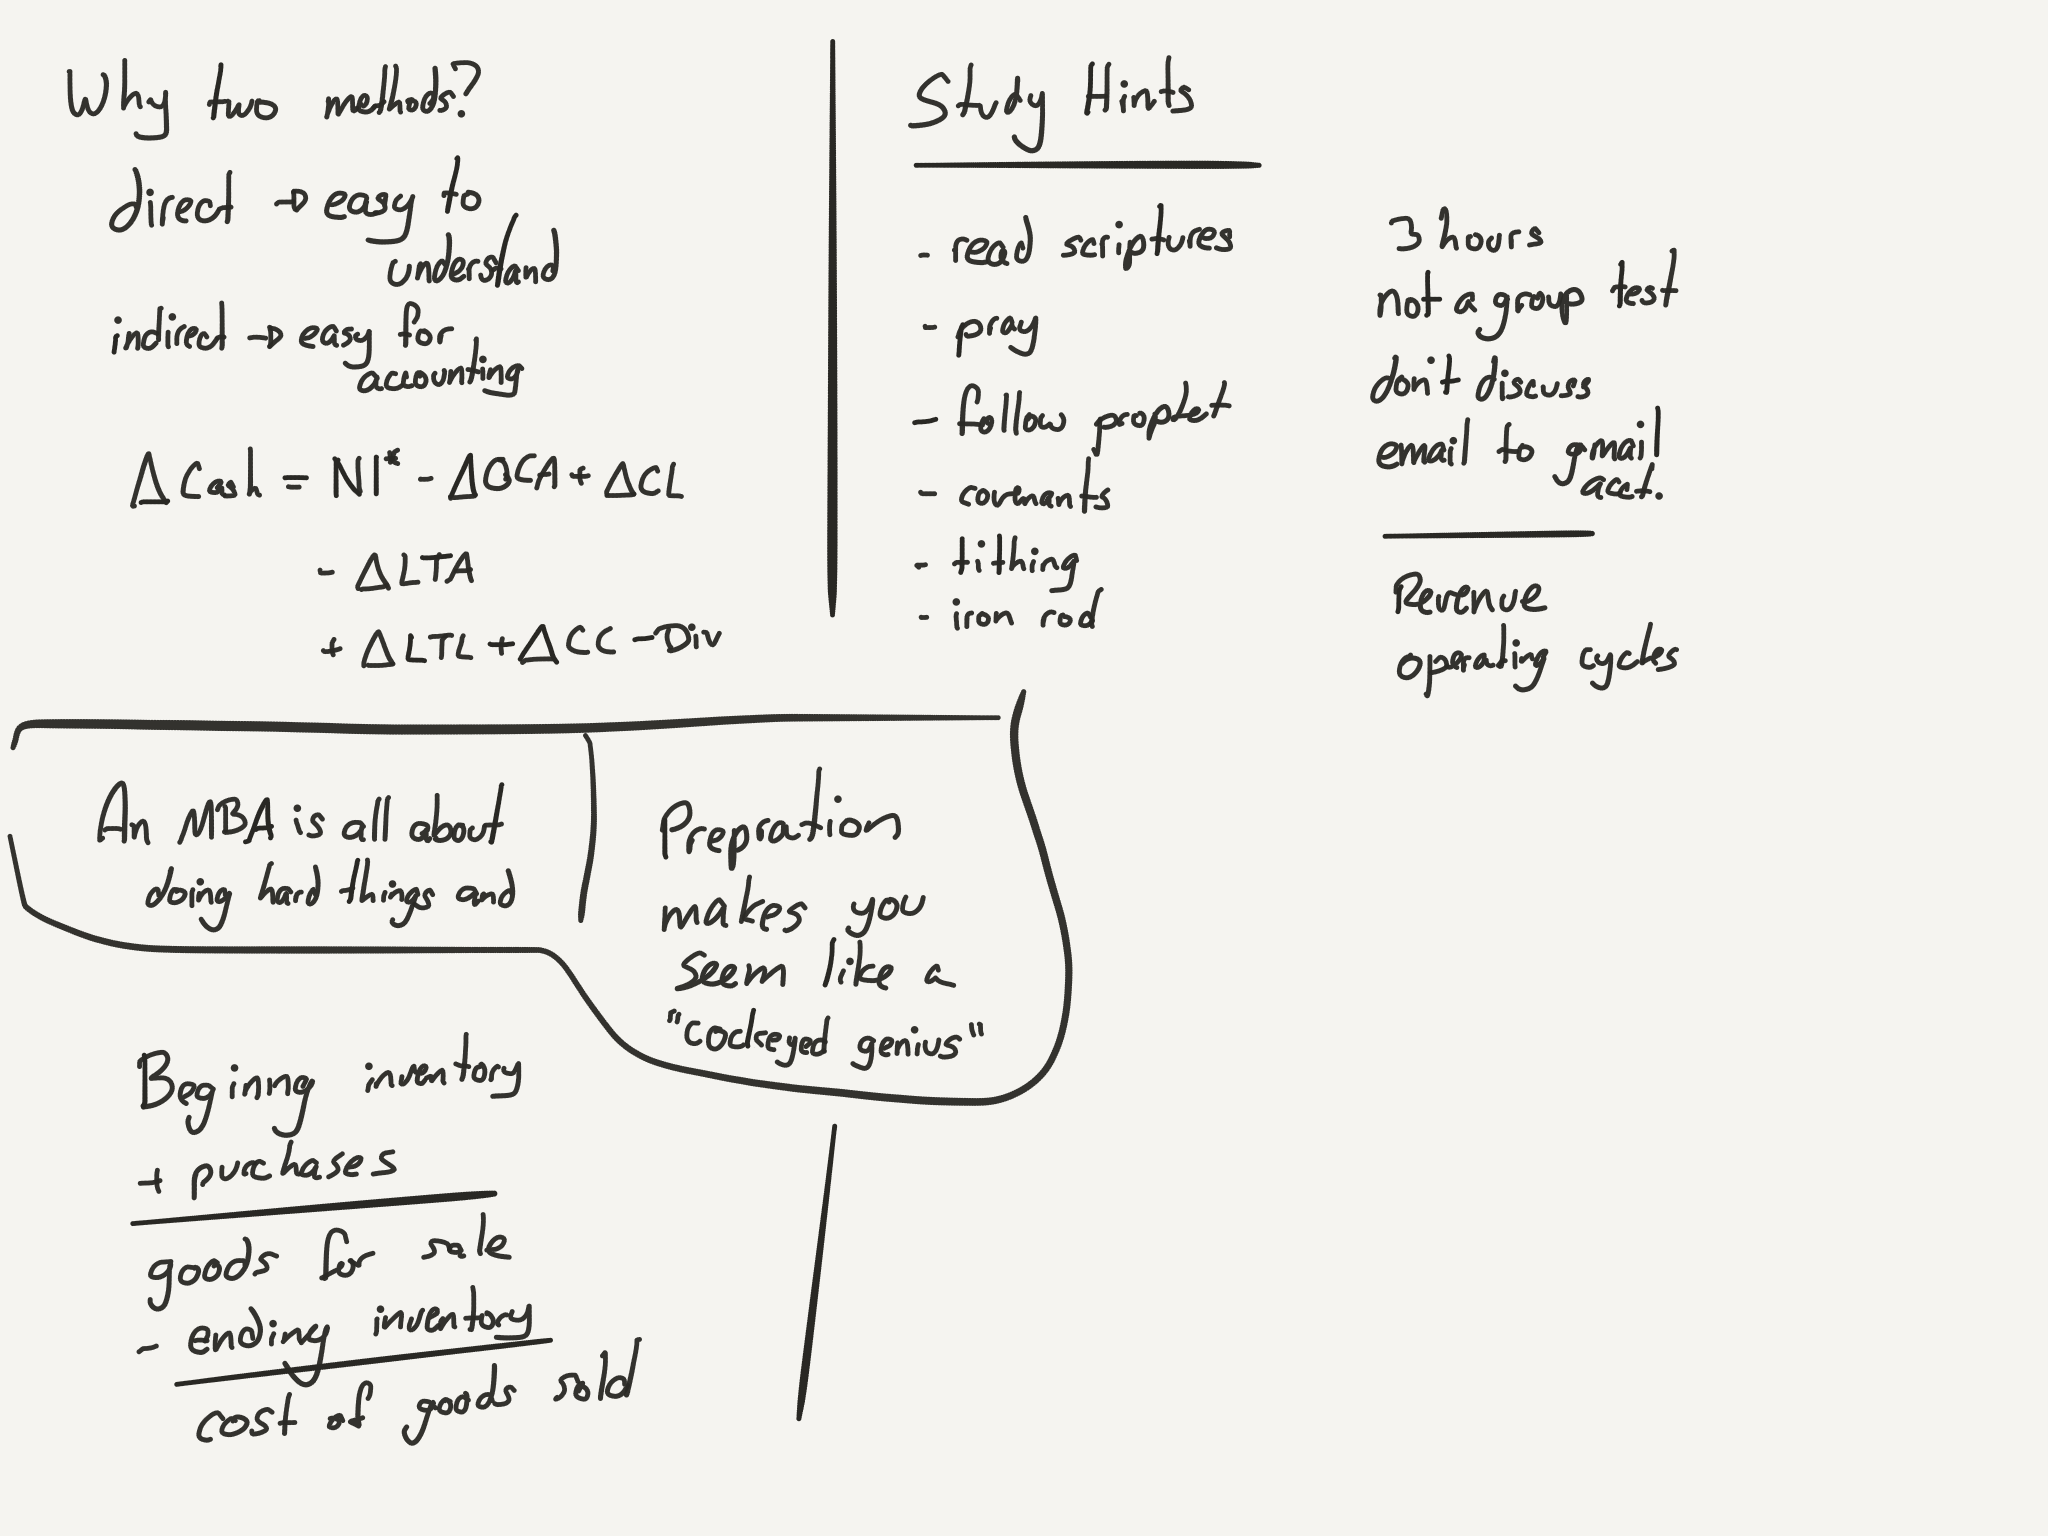 Why two methods?
direct → easy to
understand
indirect → easy for
accounting
Δ Cash = NI* - ΔOCA + ΔCL
- ΔLTA
+ ΔLTL + ΔCC - Div
Study Hints
- read scriptures
- pray
- follow prophet
- covenants
- tithing
- iron rod
3 hours
not a group test
don't discuss
email to gmail
acct.
Revenue
operating cycles
An MBA is all about
doing hard things and
Prepration
makes you
seem like a
"cockeyed genius"
Beginng inventory
+ purchases
goods for sale
- ending inventory
cost of goods sold